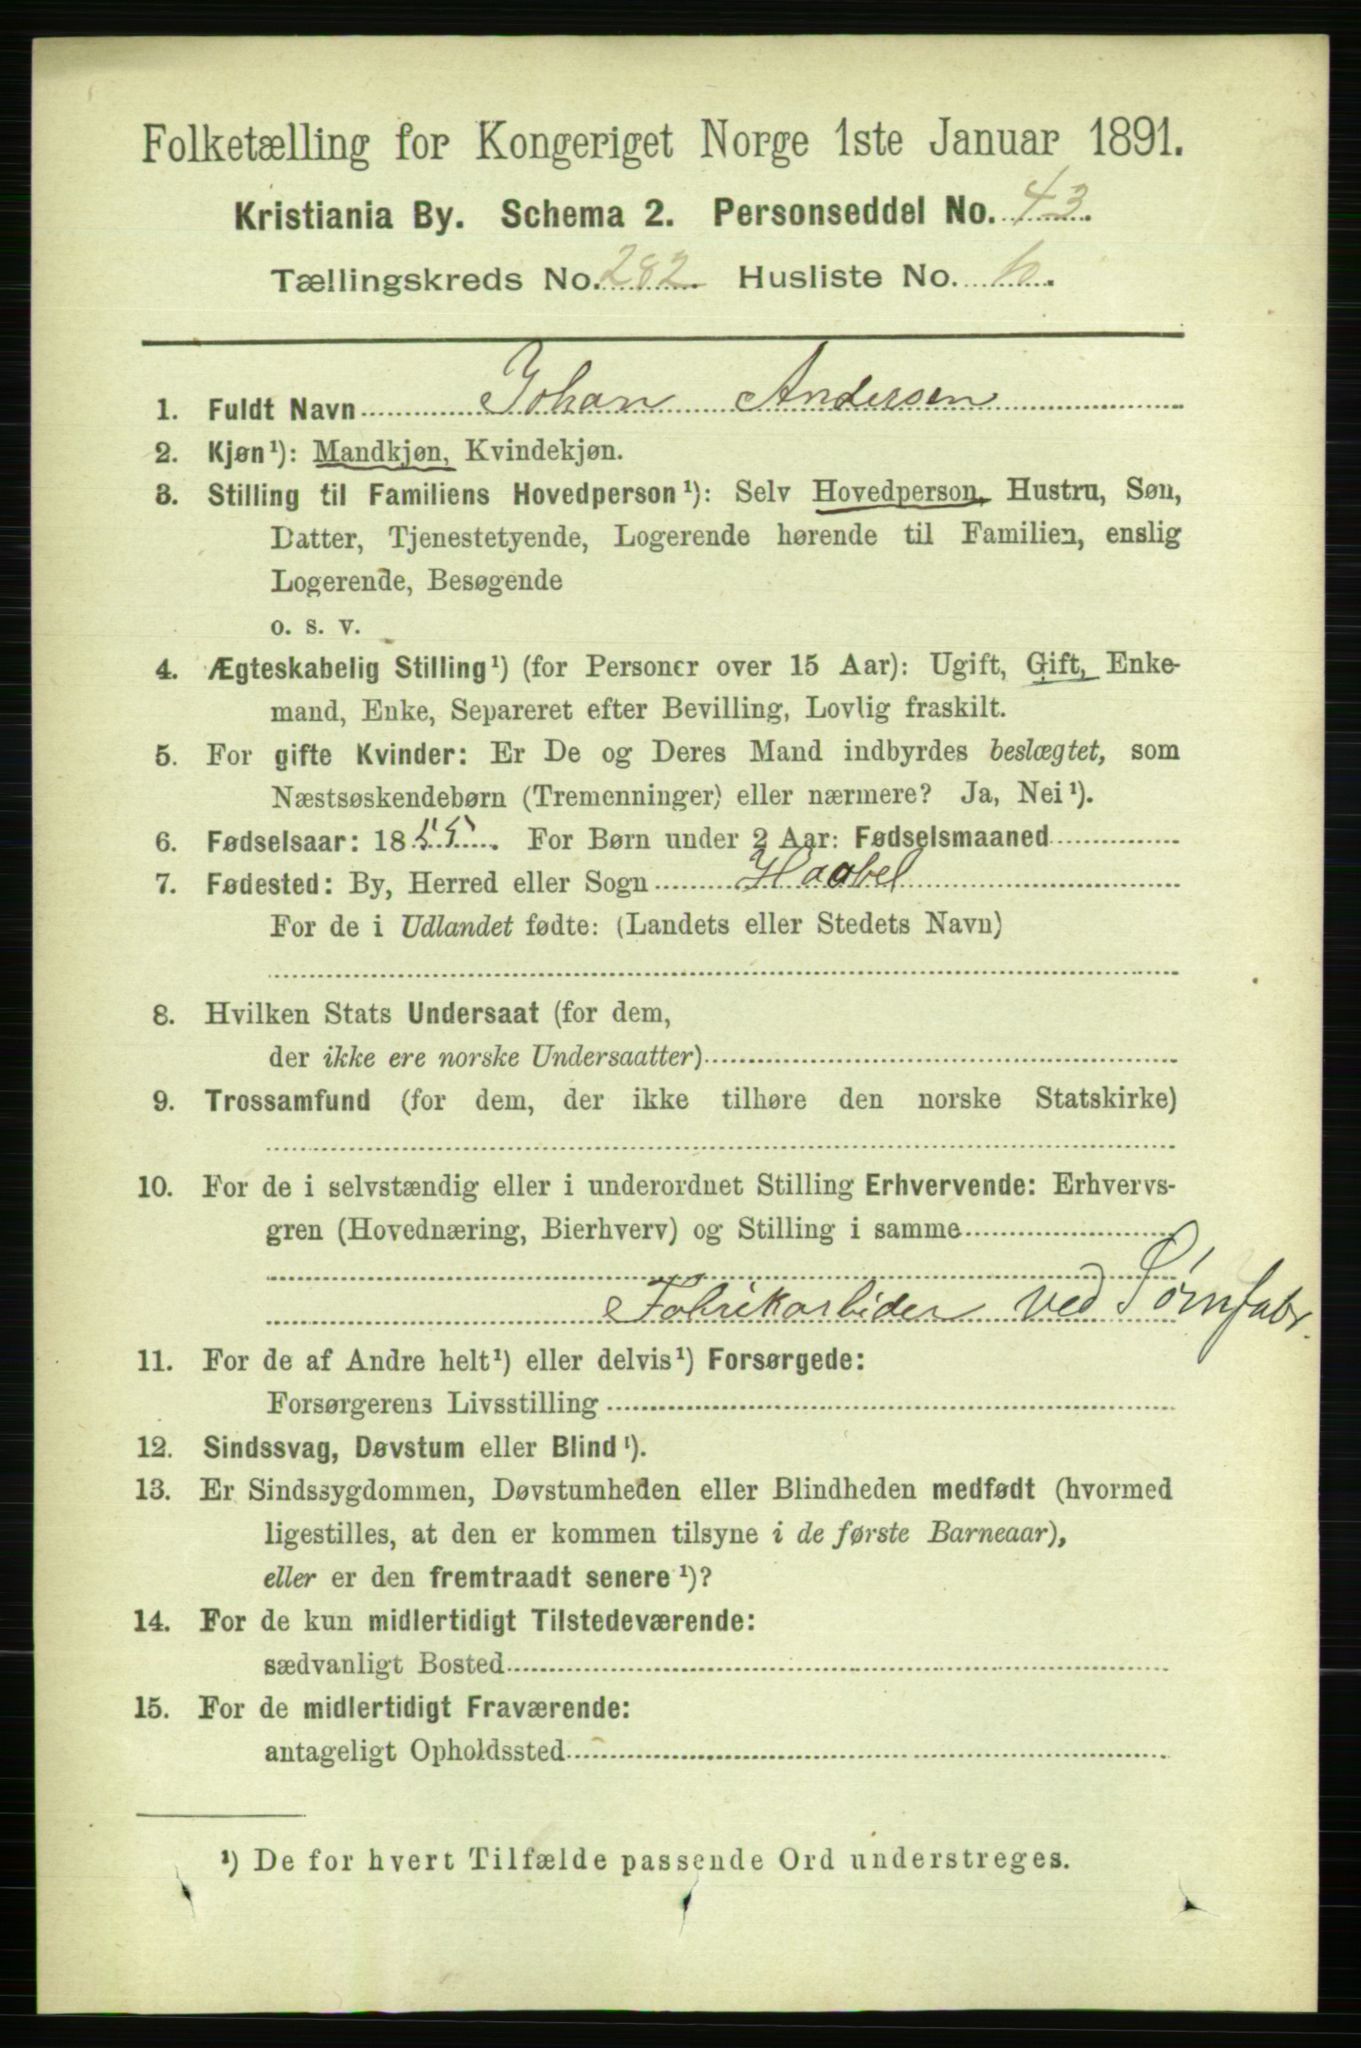 Folketælling for Kongeriget Norge 1ste Januar 1891.
Kristiania By. Schema 2. Personseddel No. 43.
Tællingskreds No. 282. Husliste No.
1. Fuldt Navn Johan Andersen
2. Kjøn¹): Mandkjøn, Kvindekjøn.
3. Stilling til Familiens Hovedperson¹): Selv Hovedperson, Hustru, Søn,
Datter, Tjenestetyende, Logerende hørende til Familien, enslig
Logerende, Besøgende
o. s. v.
4. Ægteskabelig Stilling¹) (for Personer over 15 Aar): Ugift, Gift, Enke-
mand, Enke, Separeret efter Bevilling, Lovlig fraskilt.
5. For gifte Kvinder: Er De og Deres Mand indbyrdes beslægtet, som
Næstsøskendebørn (Tremenninger) eller nærmere? Ja, Nei¹).
6. Fødselsaar: 1855. For Børn under 2 Aar: Fødselsmaaned
7. Fødested: By, Herred eller Sogn Haabel
For de i Udlandet fødte: (Landets eller Stedets Navn)
8. Hvilken Stats Undersaat (for dem,
der ikke ere norske Undersaatter)
9. Trossamfund (for dem, der ikke tilhøre den norske Statskirke)
10. For de i selvstændig eller i underordnet Stilling Erhvervende: Erhvervs-
gren (Hovednæring, Bierhverv) og Stilling i samme
Fabrikarbider ved Sømfabr.
11. For de af Andre helt¹) eller delvis¹) Forsørgede:
Forsørgerens Livsstilling
12. Sindssvag, Døvstum eller Blind¹).
13. Er Sindssygdommen, Døvstumheden eller Blindheden medfødt (hvormed
ligestilles, at den er kommen tilsyne i de første Barneaar),
eller er den fremtraadt senere¹)?
14. For de kun midlertidigt Tilstedeværende:
sædvanligt Bosted
15. For de midlertidigt Fraværende:
antageligt Opholdssted
¹) De for hvert Tilfælde passende Ord understreges.